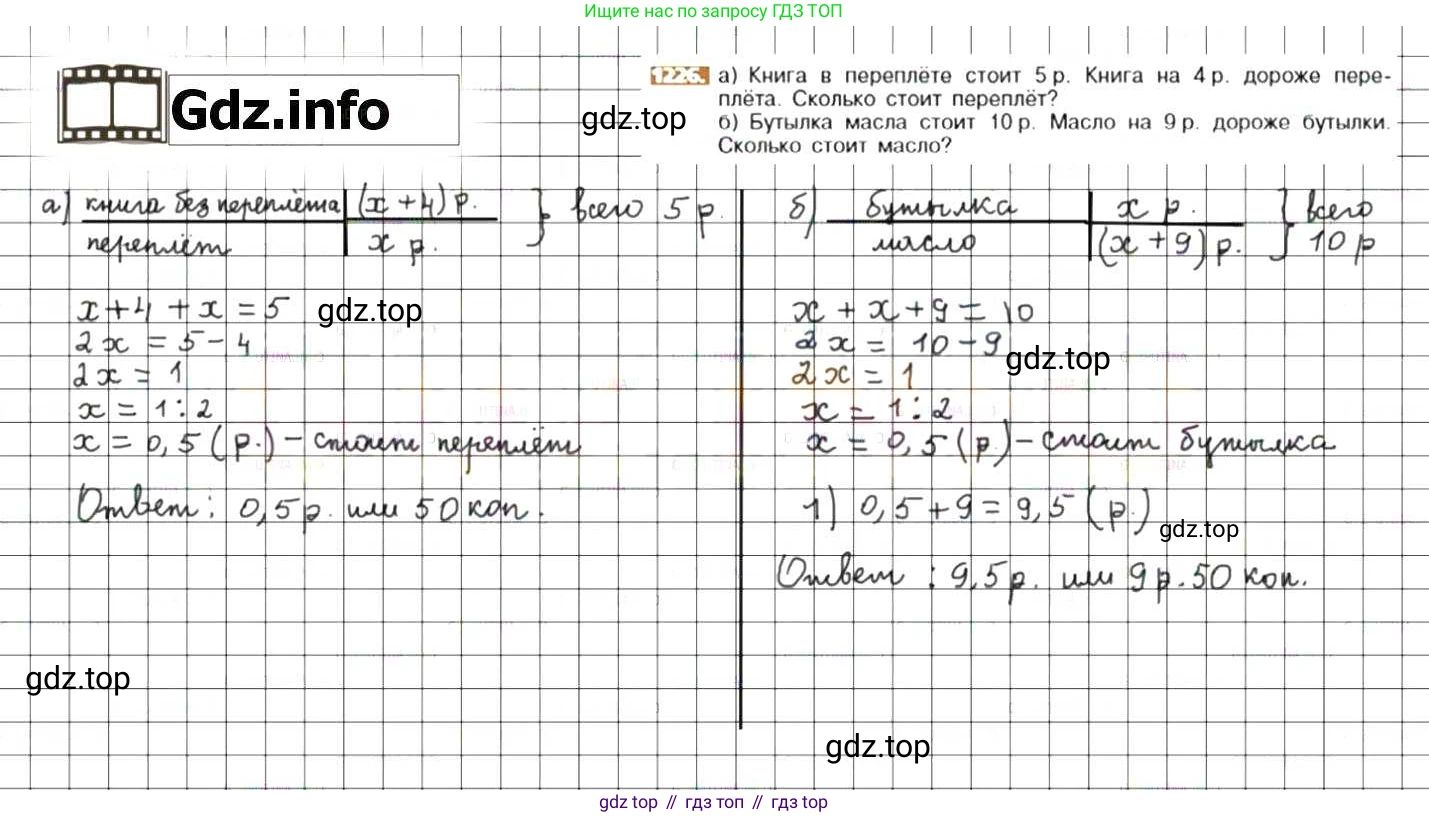 Ищите нас по запросу ГДЗ ТОП
Gdz.info
1226. а) Книга в переплёте стоит 5 р. Книга на 4 р. дороже пере-
плёта. Сколько стоит переплёт?
б) Бутылка масла стоит 10 р. Масло на 9 р. дороже бутылки.
Сколько стоит масло?
gdz.top
а) книга без переплёта (x + 4) р. } всего 5 р.
переплёт x р.
x + 4 + x = 5
gdz.top
2x = 5 - 4
2x = 1
x = 1 : 2
x = 0,5 (р.) - стоит переплёт
Ответ: 0,5 р. или 50 коп.
б) бутылка x р. } всего
масло (x + 9) р. 10 р
x + x + 9 = 10
2x = 10 - 9
gdz.top
2x = 1
x = 1 : 2
x = 0,5 (р) - стоит бутылка
1) 0,5 + 9 = 9,5 (р.)
gdz.top
Ответ : 9,5 р. или 9 р. 50 коп.
gdz.top
gdz.top
gdz top // гдз топ // gdz top